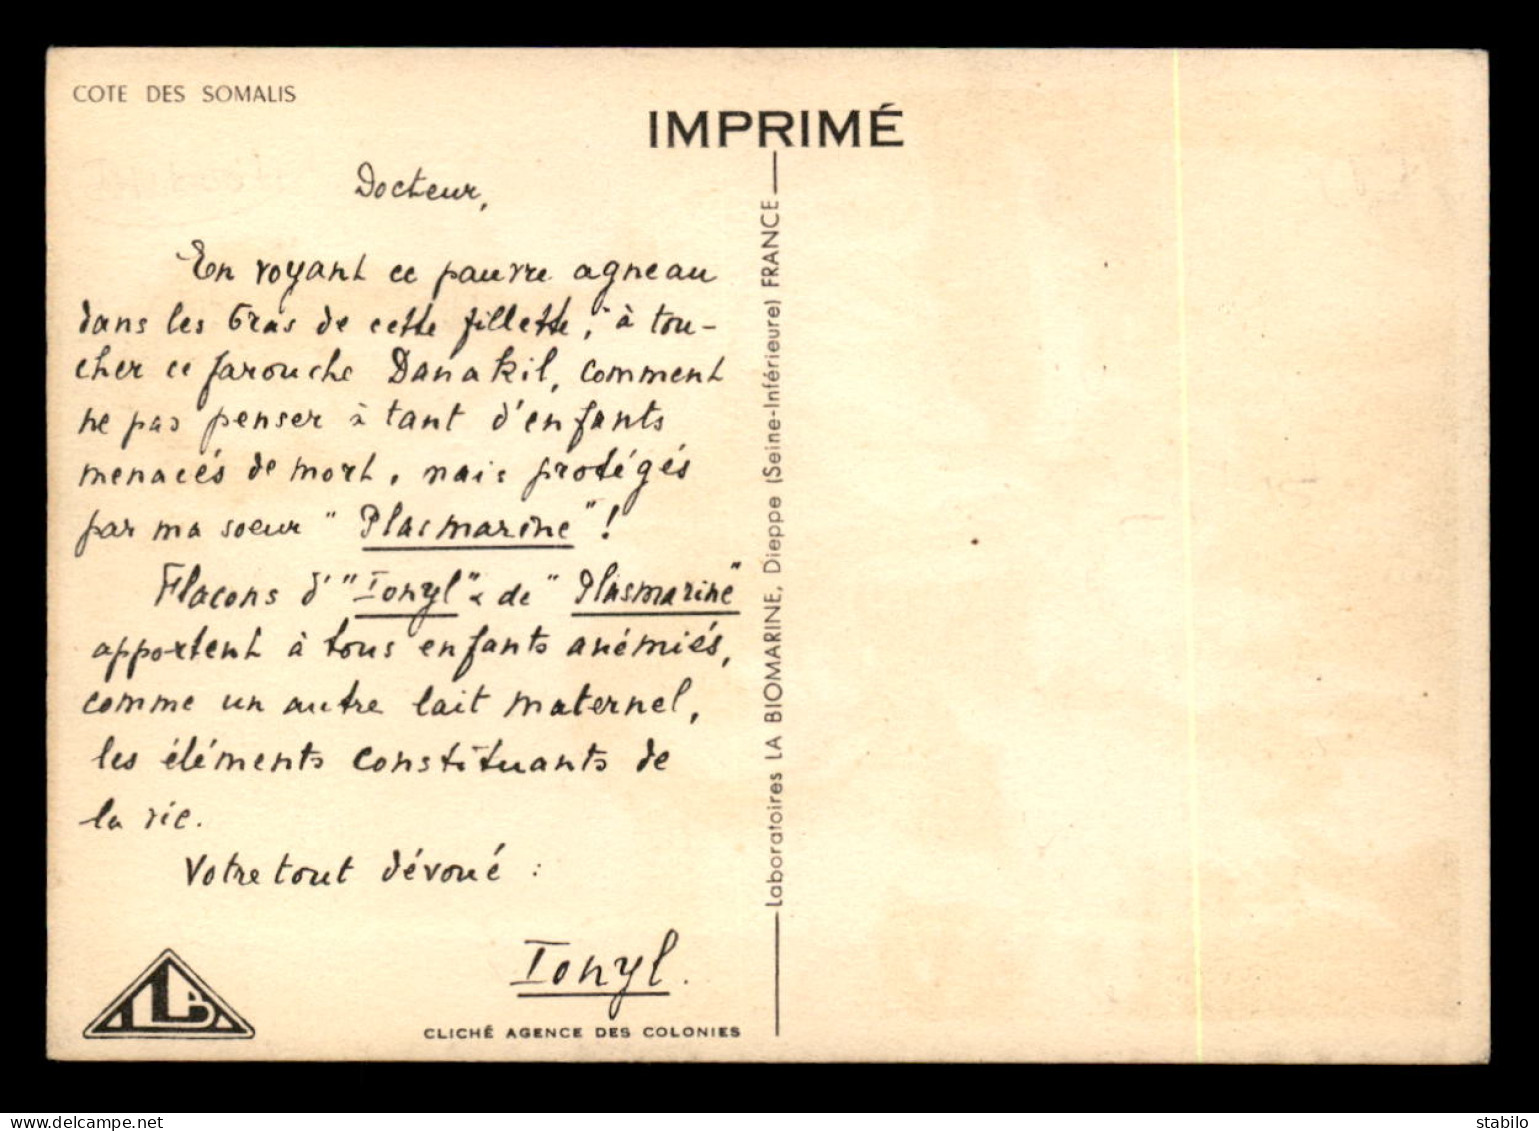 COTE DES SOMALIS
IMPRIMÉ
Docteur,
En voyant ce pauvre agneau
dans les bras de cette fillette, à tou-
cher ce farouche Danakil, comment
ne pas penser à tant d'enfants
menacés de mort, mais protégés
par ma soeur "Plasmarine"!
Flacons d'"Ionyl" & de "Plasmarine"
apportent à tous enfants anémiés,
comme un autre lait maternel,
les éléments constituants de
la vie.
Votre tout dévoué :
Ionyl.
CLICHÉ AGENCE DES COLONIES
Laboratoires LA BIOMARINE, Dieppe (Seine-Inférieure) FRANCE
LB
stabilo